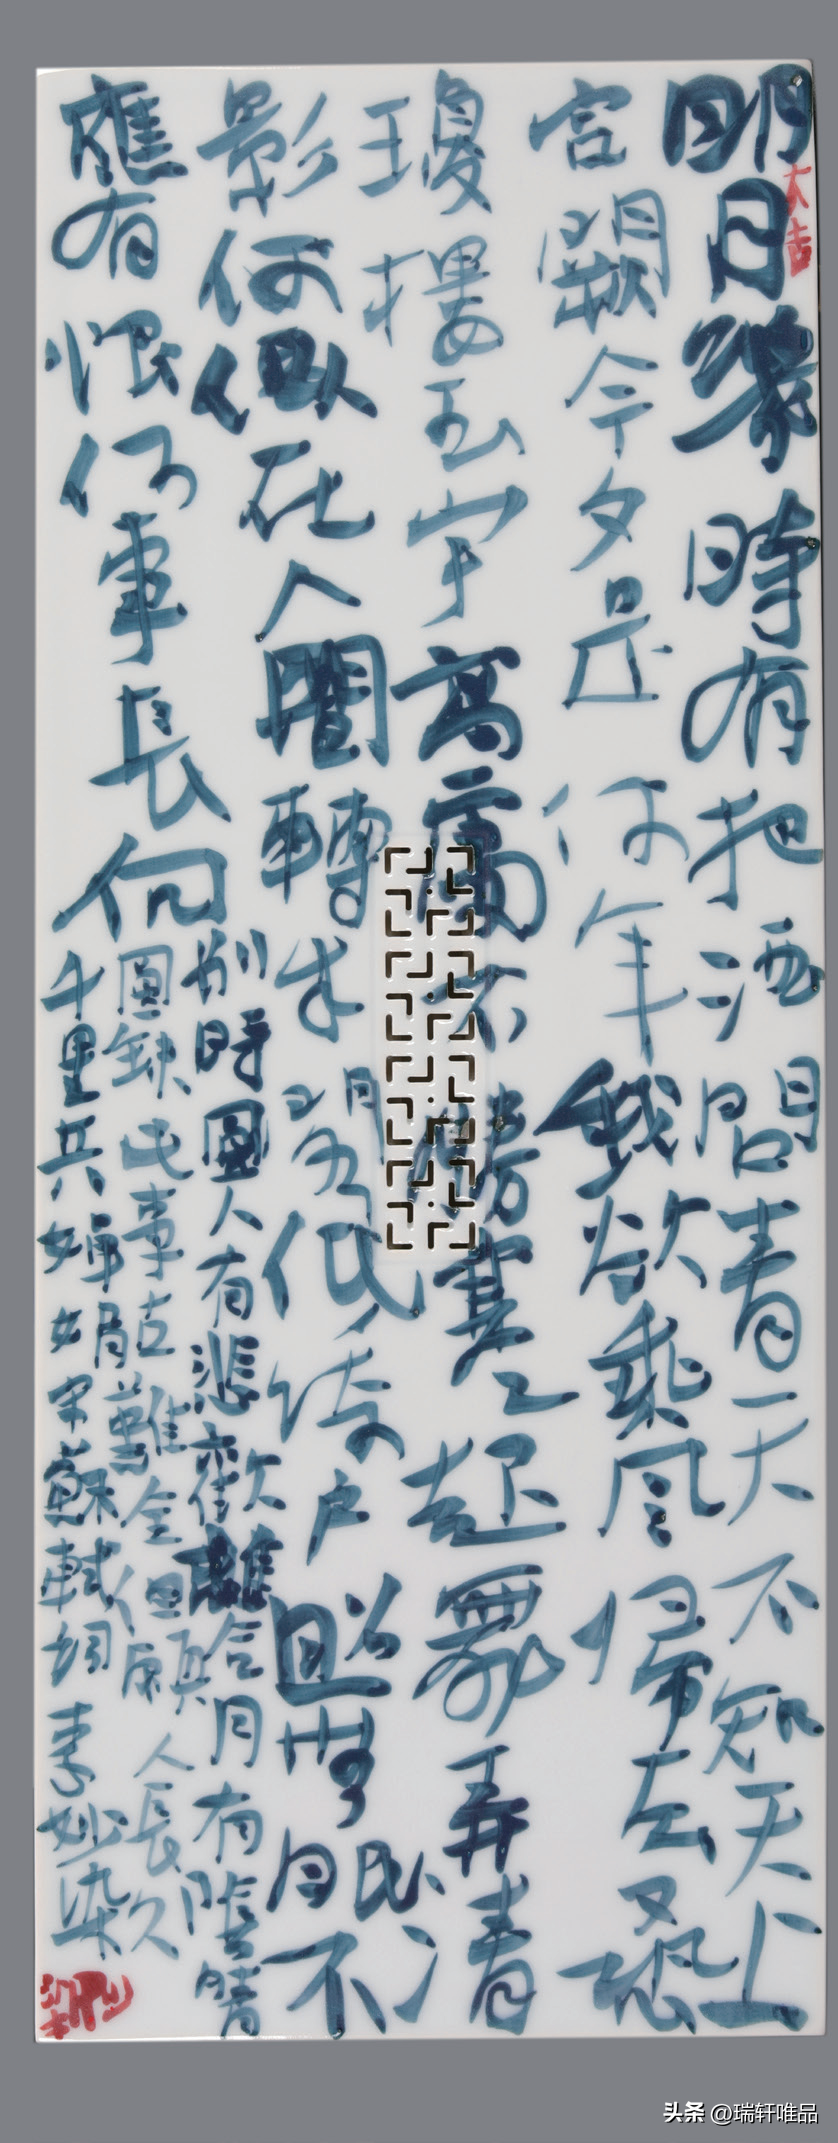 大吉
明日幾時有把酒問青天不知天上
宮闕今夕是何年我欲乘风歸去又恐
瓊樓玉宇高處不勝寒起舞弄清
影何似在人間轉朱閣低綺户照無眠不
應有恨何事長向
別時圓人有悲歡離合月有陰晴
圓缺此事古難全但願人長久
千里共嬋娟宋蘇軾詞李妙染
头条 @瑞轩唯品